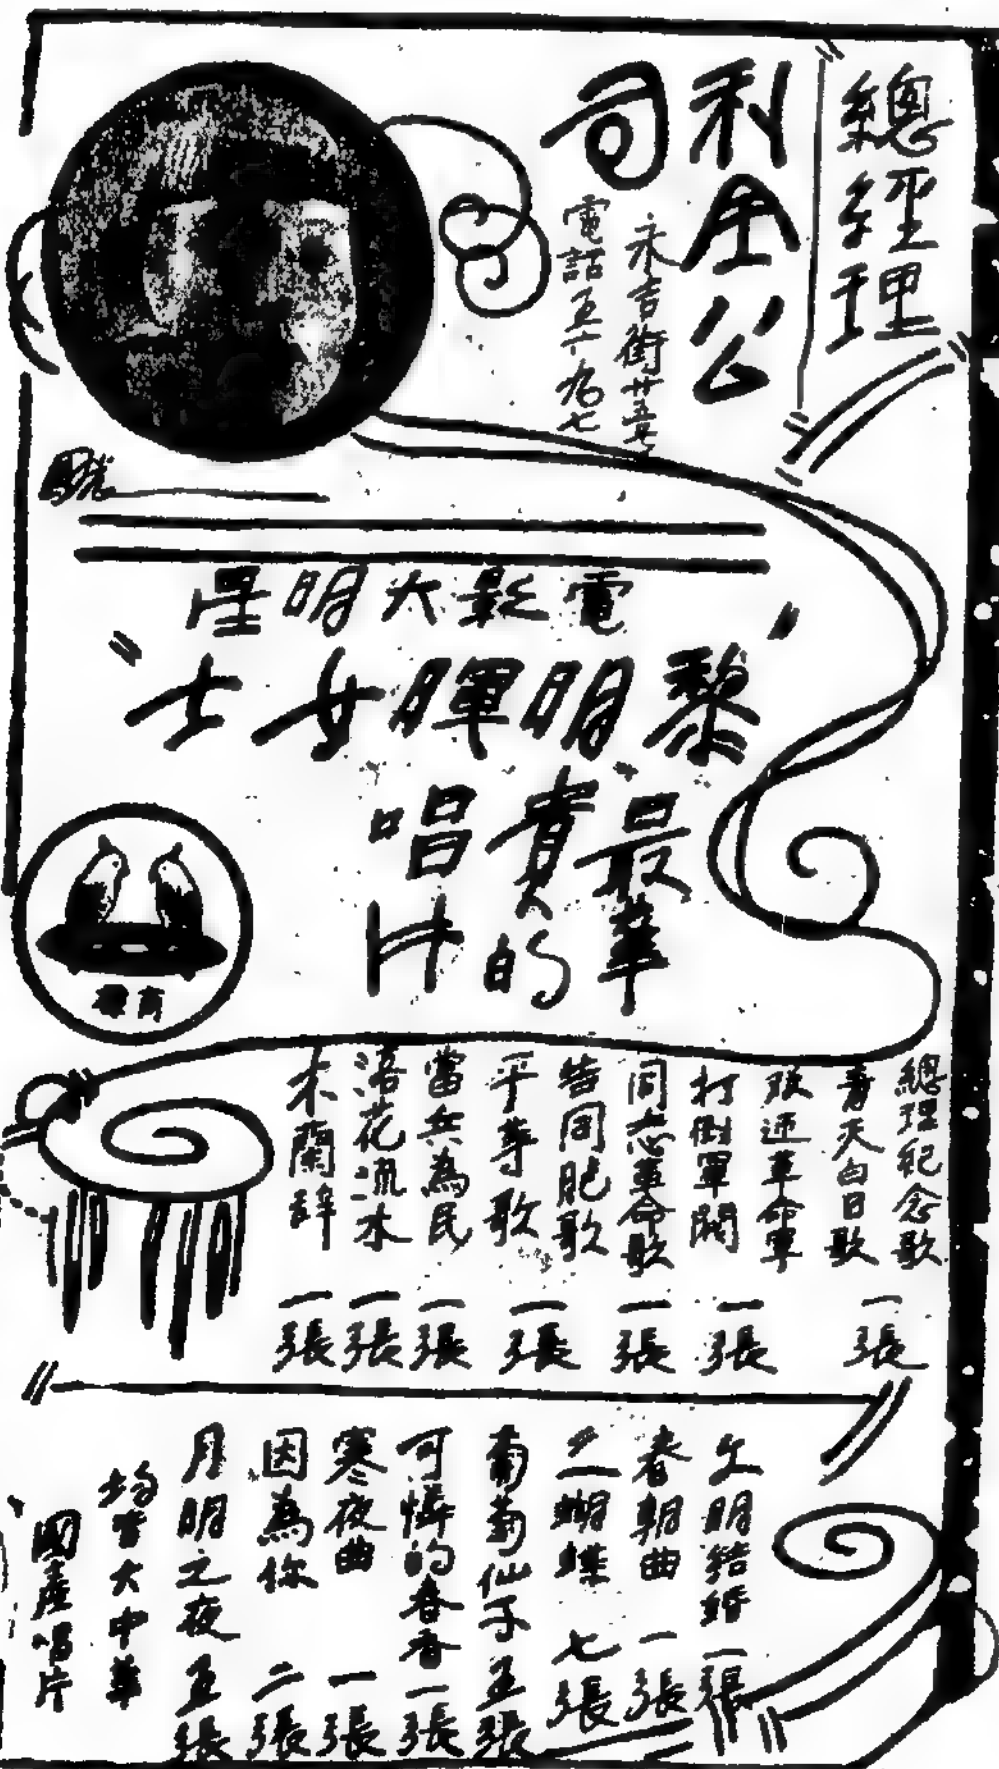 總經理
利全公司
永吉街廿五号
電話五一九七
電影大明星
黎明暉女士
最
貴
唱
華的片
商標
總理紀念歌
青天白日歌 一張
歡迎革命軍
打倒軍閥 一張
同志革命歌 一張
告同胞歌
平等歌 一張
當兵為民 一張
落花流水 一張
木蘭辭 一張
文明結婚 一張
春朝曲 一張
蝴蝶 七張
葡萄仙子 五張
可憐的春香 一張
寒夜曲 一張
因為你 二張
月明之夜 五張
均皆大中華
國產唱片